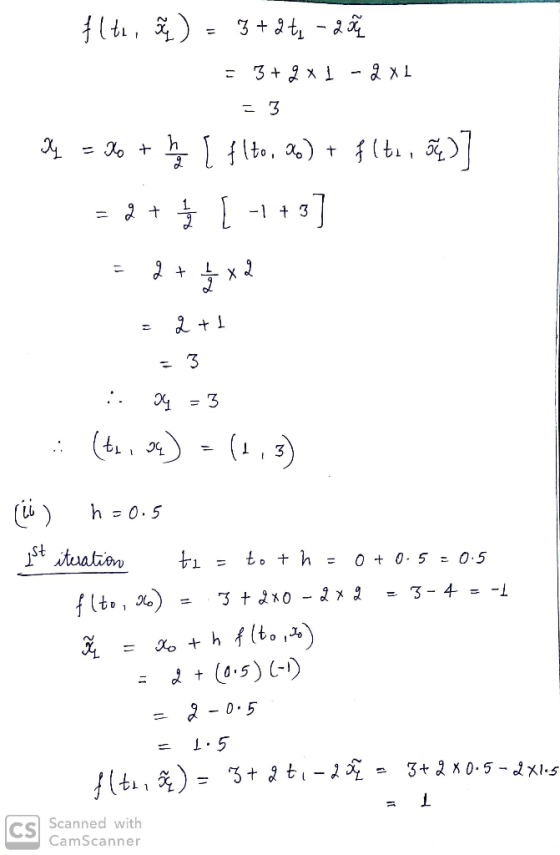 f(t₁, x̃₁) = 3 + 2t₁ - 2x̃₁
= 3 + 2 x 1 - 2 x 1
= 3
x₁ = x₀ + h/2 [ f(t₀, x₀) + f(t₁, x̃₁)]
= 2 + 1/2 [ -1 + 3]
= 2 + 1/2 x 2
= 2 + 1
= 3
∴ x₁ = 3
∴ (t₁, x₁) = (1, 3)
(ii) h = 0.5
1st iteration t₁ = t₀ + h = 0 + 0.5 = 0.5
f(t₀, x₀) = 3 + 2x0 - 2 x 2 = 3 - 4 = -1
x̃₁ = x₀ + h f(t₀, x₀)
= 2 + (0.5) (-1)
= 2 - 0.5
= 1.5
f(t₁, x̃₁) = 3 + 2t₁ - 2x̃₁ = 3 + 2 x 0.5 - 2x1.5
= 1
CS Scanned with
CamScanner